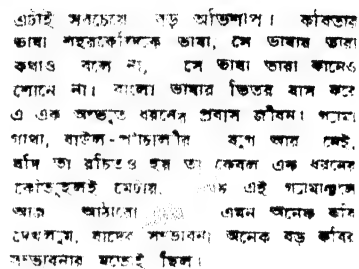 এটাই সবচেয়ে বড় অভিশাপ। কবিতার
ভাষা শহরকেন্দ্রিক ভাষা, সে ভাষায় তারা
কথাও বলে না, সে ভাষা তারা কানেও
শোনে না। বাংলা ভাষার ভিতর বাস করে
এ এক অদ্ভুত ধরনের প্রবাস জীবন। পল্লী
গাথা, বাউল-পাঁচালীর যুগ আর নেই,
যদি তা রচিতও হয় তা কেবল এক ধরনের
কৌতূহলই মেটায়। এই গ্রামাঞ্চলে
আজ আঠারো এমন অনেক কবি
দেখলুম, যাদের সম্ভাবনা অনেক বড় কবির
সম্ভাবনার মতোই ছিল।